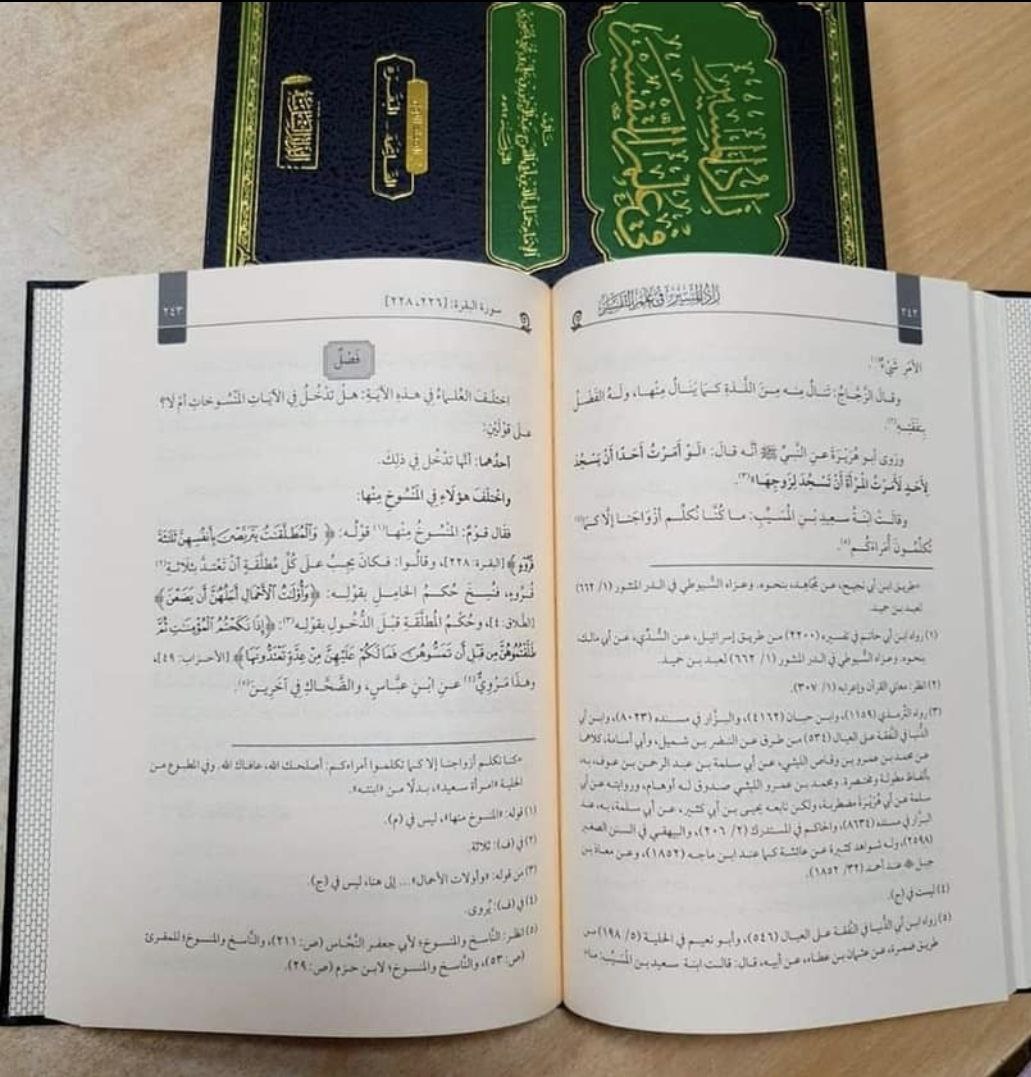 زاد المسير
في علم التفسير
الفاتحة - البقرة
٢٤٢
زاد المسير في علم التفسير
الأمرِ شَيْءٌ(١).
وقالَ الزَّجَّاجُ: تَنالُ مِنه مِنَ اللَّذةِ كَما يَنالُ مِنْها، ولَهُ الفَضْلُ
بِنفَقَتِهِ(٢).
ورَوى أبو هُرَيْرَةَ عَنِ النَّبِيِّ ﷺ أنَّه قالَ: «لَوْ أمَرْتُ أحَدًا أنْ يَسْجُدَ
لِأحَدٍ لَأمَرْتُ المَرْأةَ أنْ تَسْجُدَ لِزَوجِهَا»(٣).
وقالَتِ ابْنَةُ سعيدِ بْنِ المُسَيِّبِ: ما كُنَّا نُكَلِّم أزْوَاجَنا إلَّا كَما(٤)
تُكَلِّمُونَ أُمَراءَكُم(٥).
=طريق ابن أبي نجيح، عن مجاهد، بنحوه. وعزاه السُّيوطي في الدر المنثور (١/ ٦٦٢)
لعبد بن حميد.
(١) رواه ابن أبي حاتم في تفسيره (٢٢٠٠) من طريق إسرائيل، عن السُّدِّي، عن أبي مالك،
بنحوه. وعزاه السُّيوطي في الدر المنثور (١/ ٦٦٢) لعبد بن حميد.
(٢) انظر: معاني القرآن وإعرابه (١/ ٣٠٧).
(٣) رواه التِّرمذي (١١٥٩)، وابن حبان (٤١٦٢)، والبزَّار في مسنده (٨٠٢٣)، وابن أبي
الدُّنيا في النَّفقة على العيال (٥٣٤) من طرق عن النضر بن شميل، وأبي أسامة، كلاهما
عن محمد بن عمرو بن وقاص الليثي، عن أبي سلمة بن عبد الرحمن بن عوف، به،
بألفاظ مطولة ومختصرة. ومحمد بن عمرو الليثي صدوق له أوهام، وروايته عن أبي
سلمة عن أبي هُرَيْرَة مضطربة، ولكن تابعه يحيى بن أبي كثير، عن أبي سلمة، به، عند
البزَّار في مسنده (٨٦٣٤)، والحاكم في المستدرك (٢/ ٢٠٦)، والبيهقي في السنن الصغير
(٢٥٩٨)، وله شواهد كثيرة عن عائشة كما عند ابن ماجه (١٨٥٢)، وعن معاذ بن
جبل عند أحمد (٣٢/ ١٨٥٢).
(٤) ليست في (ج).
(٥) رواه ابن أبي الدُّنيا في النَّفقة على العيال (٥٤٦)، وأبو نعيم في الحلية (٥/ ١٩٨) من
طريق ضمرة، عن عثمان بن عطاء، عن أبيه، قال: قالت ابنة سعيد بن المُسَيِّب: ما=
سورة البقرة: [٢٢٦، ٢٢٨]
٢٤٣
فَصْلٌ
اخْتَلَفَ العُلَماءُ في هذِهِ الآيَةِ: هلْ تَدْخُلُ في الآياتِ المَنْسُوخاتِ أمْ لا؟
على قَوْلَيْنِ:
أحدُهما: أنَّها تدْخُل في ذلِكَ.
واخْتَلَفَ هؤلَاءِ في المَنْسُوخِ مِنْها:
فقال قومٌ: المَنْسُوخُ مِنْها(١) قَوْلُه: ﴿وَٱلْمُطَلَّقَٰتُ يَتَرَبَّصْنَ بِأَنفُسِهِنَّ ثَلَٰثَةَ
قُرُوٓءٍ﴾ [البقرة: ٢٢٨]، وقَالُوا: فَكَانَ يَجِبُ عَلى كُلِّ مُطَلَّقَةٍ أنْ تَعْتَدَّ بِثَلَاثَةِ(٢)
قُرُوءٍ، فنُسِخَ حُكْمُ الحَامِلِ بِقَوْلِه: ﴿وَأُو۟لَٰتُ ٱلْأَحْمَالِ أَجَلُهُنَّ أَن يَضَعْنَ﴾
[الطلاق: ٤]، وحُكْمُ المُطَلَّقَةِ قَبْلَ الدُّخُولِ بقولِه(٣): ﴿إِذَا نَكَحْتُمُ ٱلْمُؤْمِنَٰتِ ثُمَّ
طَلَّقْتُمُوهُنَّ مِن قَبْلِ أَن تَمَسُّوهُنَّ فَمَا لَكُمْ عَلَيْهِنَّ مِنْ عِدَّةٍ تَعْتَدُّونَهَا﴾ [الأحزاب: ٤٩]،
وهذَا مَرْوِيٌّ(٤) عنِ ابْنِ عبَّاسٍ، والضَّحَّاكِ في آخَرِينَ(٥).
=كنا نكلم أزواجنا إلا كما تكلموا أمراءكم: أصلحك الله، عافاك الله. وفي المطبوع من
الحلية «امرأة سعيد»، بدلًا من «ابنته».
(١) قوله: «المنسوخ منها»، ليس في (م).
(٢) في (ف): ثلاثة.
(٣) من قوله: «وأولات الأحمال»... إلى هنا، ليس في (ج).
(٤) في (ف): يُروى.
(٥) انظر: النَّاسخ والمنسوخ؛ لأبي جعفر النَّحَّاس (ص: ٢١١)، والنَّاسخ والمنسوخ؛ للمقرئ
(ص: ٥٣)، والنَّاسخ والمنسوخ؛ لابن حزم (ص: ٢٩).